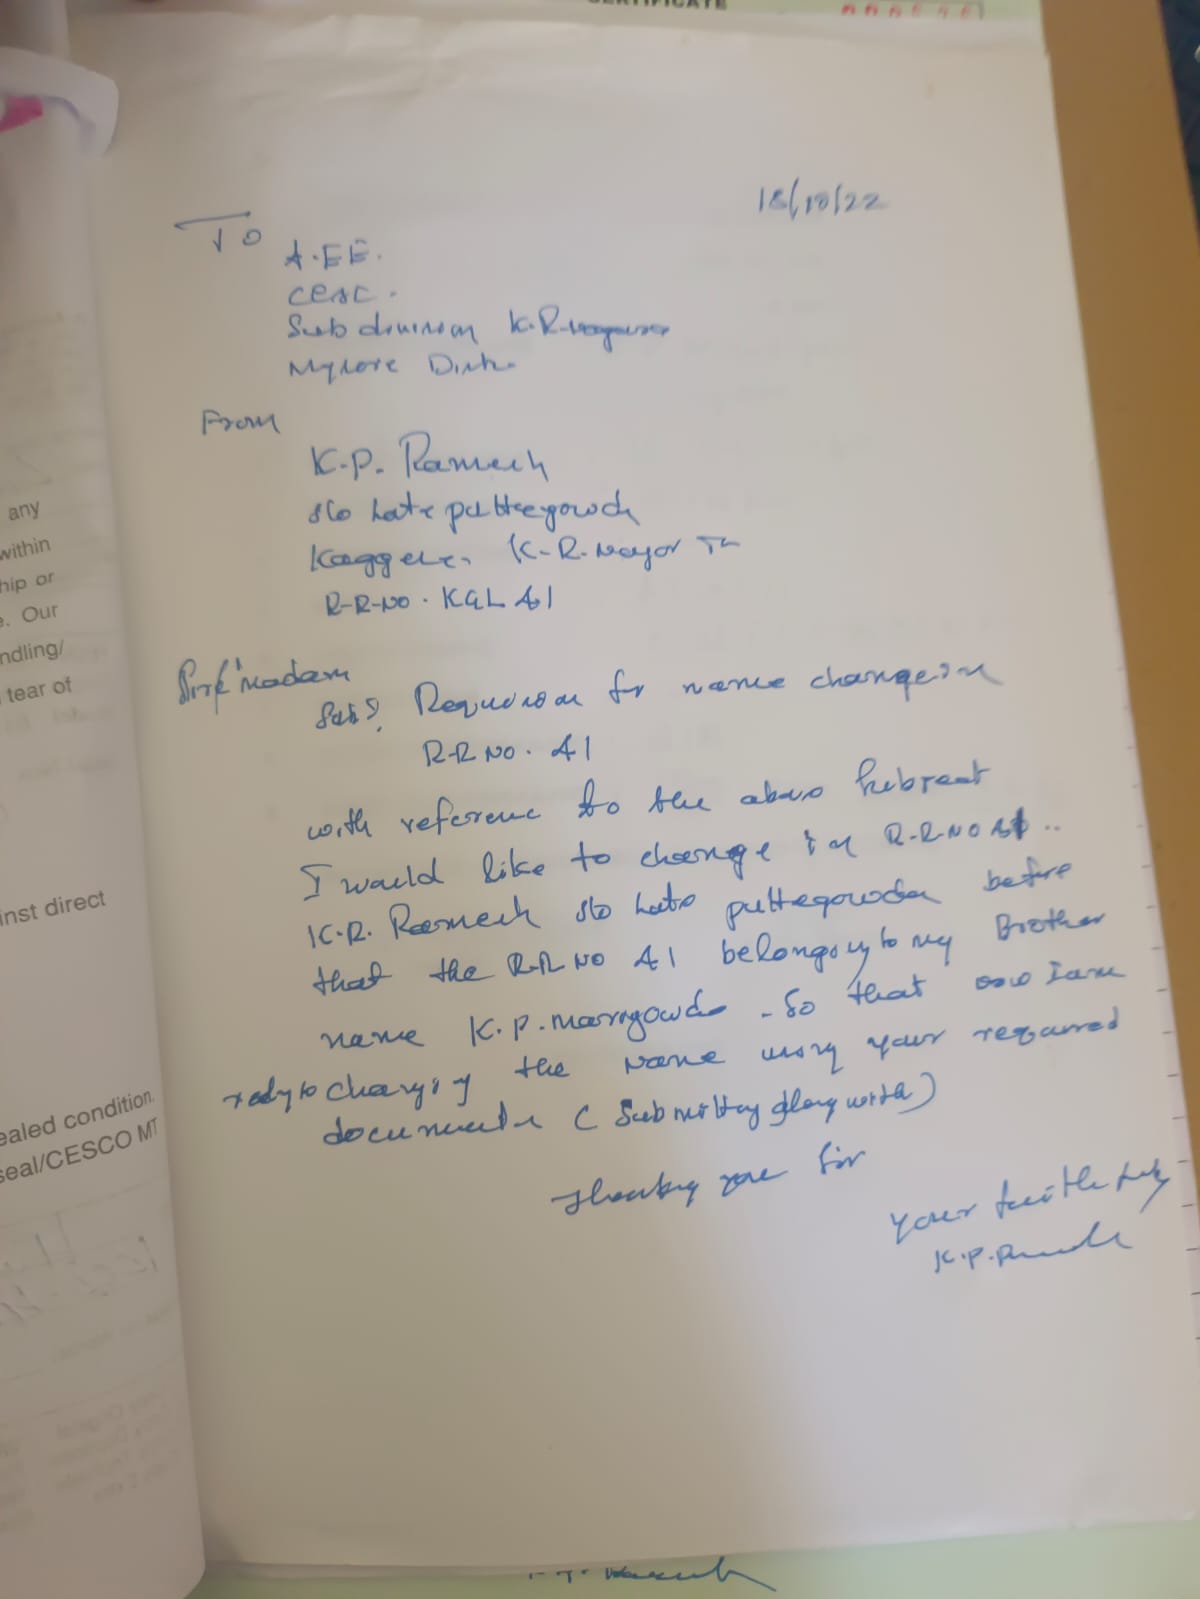 CERTIFICATE
18/10/22
To
A.EE.
CESC.
Sub division K.R. nagara
Mysore Dist.
From
K.P. Ramesh
S/o Late puttegowda
Kaggere, K-R. Nagar Tk
R-R-NO. KGL 41
Sir/madam
Sub: for name change in
R-R NO. 41
with reference to the above subject
I would like to change in R-R-NO 41 ..
K.R. Ramesh S/o Late puttegowda before
that the R.R NO 41 belongs to my Brother
name K.P. - So that now I am
redy to changing the Name using your required
documents (Submitting along with)
Thanking you Sir
your faithfuly
K.P. Ramesh
any
within
hip or
e. Our
ndling/
tear of
inst direct
ealed condition.
seal/CESCO MT